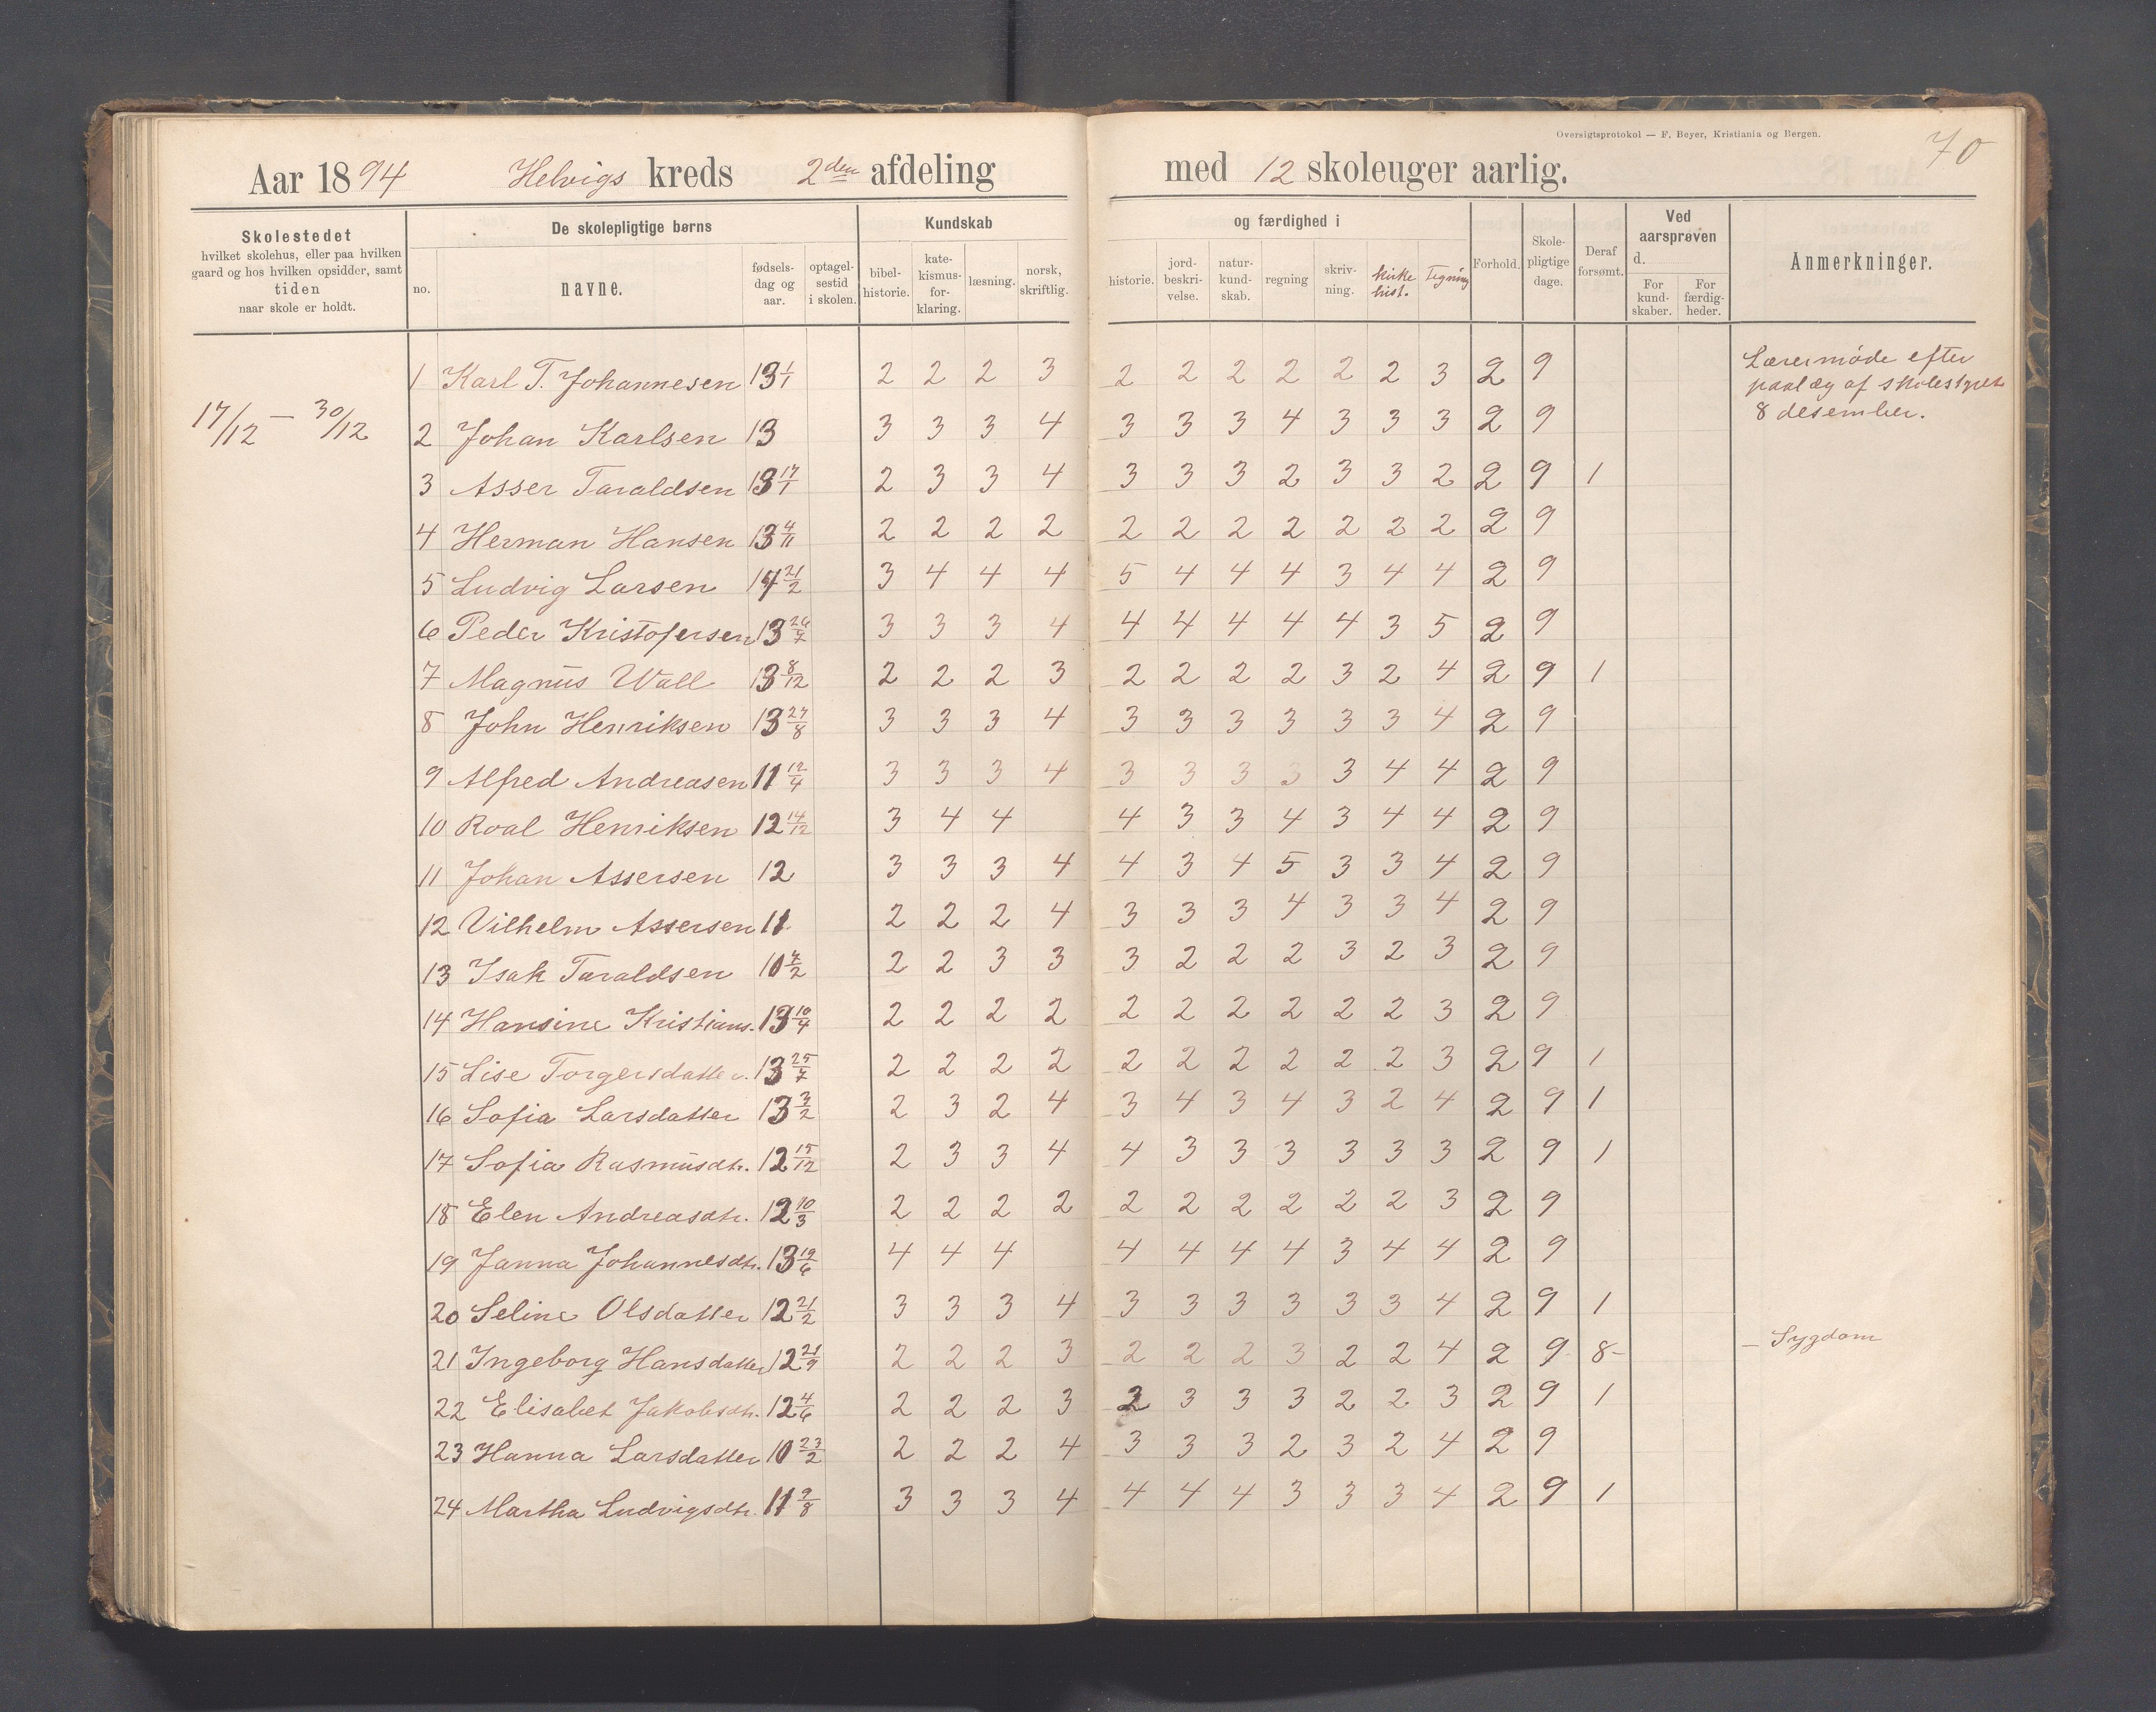 Oversigtsprotokol — F. Beyer, Kristiania og Bergen.
70
Aar 1894 Helvigs kreds 2den afdeling med 12 skoleuger aarlig.
Skolestedet hvilket skolehus, eller paa hvilken gaard og hos hvilken opsidder, samt tiden naar skole er holdt.
De skolepligtige børns
no. navne. fødsels-dag og aar. optagel-sestid i skolen.
Kundskab og færdighed i
bibel-historie. kate-kismus-for-klaring. læsning. norsk, skriftlig. historie. jord-beskri-velse. natur-kund-skab. regning skriv-ning. Kirke hist. Tegning
Forhold. Skole-pligtige dage. Deraf forsømt.
Ved aarsprøven d.
For kund-skaber. For færdig-heder.
Anmerkninger.
17/12 — 30/12
1 Karl T. Johannesen 13 1/1 2 2 2 3 2 2 2 2 2 2 3 2 9
Lærermøde efter
paalæg af skolestyret
8 desember.
2 Johan Karlsen 13 3 3 3 4 3 3 3 4 3 3 3 2 9
3 Asser Taraldsen 13 17/1 2 3 3 4 3 3 3 2 3 3 2 2 9 1
4 Herman Hansen 13 4/11 2 2 2 2 2 2 2 2 2 2 2 2 9
5 Ludvig Larsen 14 21/2 3 4 4 4 5 4 4 4 3 4 4 2 9
6 Peder Kristofersen 13 26/7 3 3 3 4 4 4 4 4 4 3 5 2 9
7 Magnus Wall 13 8/12 2 2 2 3 2 2 2 2 3 2 4 2 9 1
8 John Henriksen 13 27/8 3 3 3 4 3 3 3 3 3 3 4 2 9
9 Alfred Andreasen 11 12/4 3 3 3 4 3 3 3 3 3 4 4 2 9
10 Roal Henriksen 12 14/12 3 4 4 4 3 3 4 3 4 4 2 9
11 Johan Assersen 12 3 3 3 4 4 3 4 5 3 3 4 2 9
12 Vilhelm Assersen 11 2 2 2 4 3 3 3 4 3 3 4 2 9
13 Isak Taraldsen 10 4/2 2 2 3 3 3 2 2 2 3 2 3 2 9
14 Hansine Kristians. 13 10/4 2 2 2 2 2 2 2 2 2 2 3 2 9
15 Lise Torgersdatter. 13 25/7 2 2 2 2 2 2 2 2 2 2 3 2 9 1
16 Sofia Larsdatter 13 3/2 2 3 2 4 3 4 3 4 3 2 4 2 9 1
17 Sofia Rasmusdtr. 12 15/12 2 3 3 4 4 3 3 3 3 3 3 2 9 1
18 Elen Andreasdtr. 12 10/3 2 2 2 2 2 2 2 2 2 2 3 2 9
19 Janna Johannesdtr. 13 19/6 4 4 4 4 4 4 4 3 4 4 2 9
20 Seline Olsdatter 12 21/2 3 3 3 4 3 3 3 3 3 3 4 2 9 1
21 Ingeborg Hansdatter 12 21/9 2 2 2 3 2 2 2 3 2 2 4 2 9 8 – – Sygdom
22 Elisabet Jakobsdtr. 12 4/6 2 2 2 3 2 3 3 3 2 2 3 2 9 1
23 Hanna Larsdatter 10 23/2 2 2 2 4 3 3 3 2 3 2 4 2 9
24 Martha Ludvigsdtr. 11 9/8 3 3 3 4 4 4 4 3 3 3 4 2 9 1